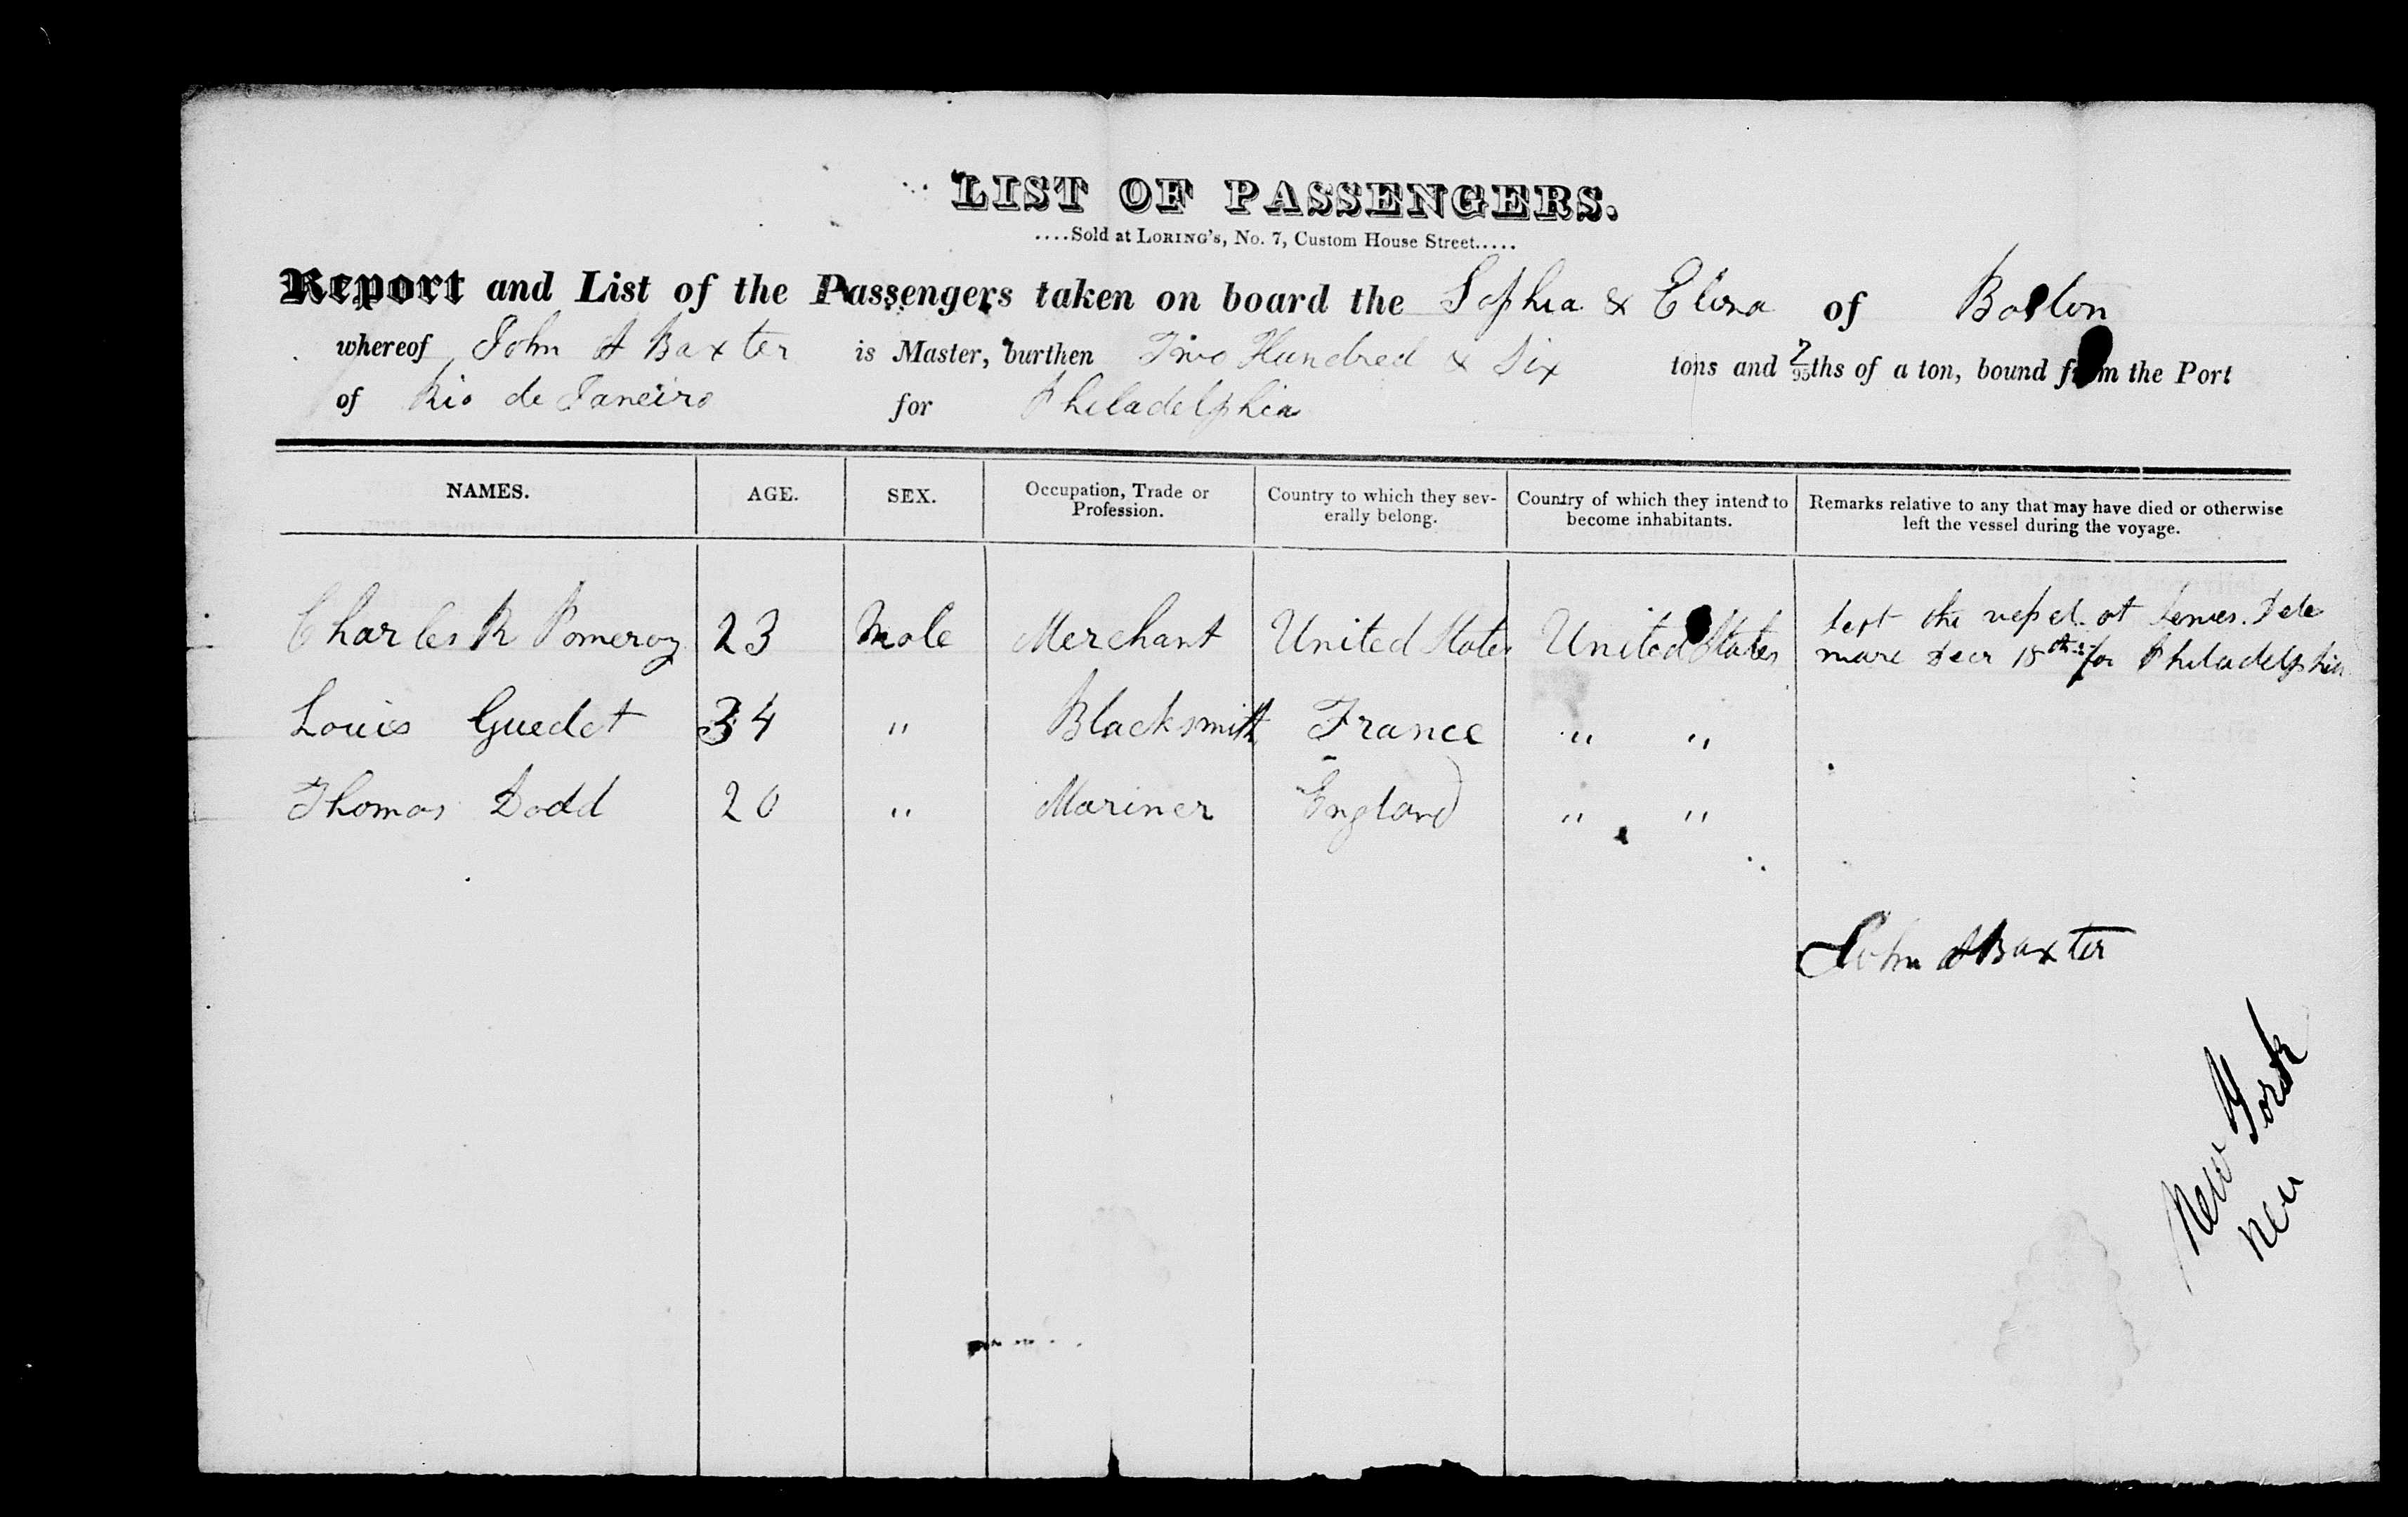 LIST OF PASSENGERS.
....Sold at LORING'S, No. 7, Custom House Street.....
Report and List of the Passengers taken on board the Sophia & Eliza of Boston
whereof John A Baxter is Master, burthen Two Hundred & Six tons and 7/95ths of a ton, bound from the Port
of Rio de Janeiro for Philadelphia
NAMES. AGE. SEX. Occupation, Trade or Profession. Country to which they severally belong. Country of which they intend to become inhabitants. Remarks relative to any that may have died or otherwise left the vessel during the voyage.
Charles R Pomeroy 23 Male Merchant United States United States left the vessel at Lewes. Dela
ware Decr 18th for Philadelphia
Louis Guedet 34 " Blacksmith France " "
Thomas Dodd 20 " Mariner England " "
John A Baxter
New York
New